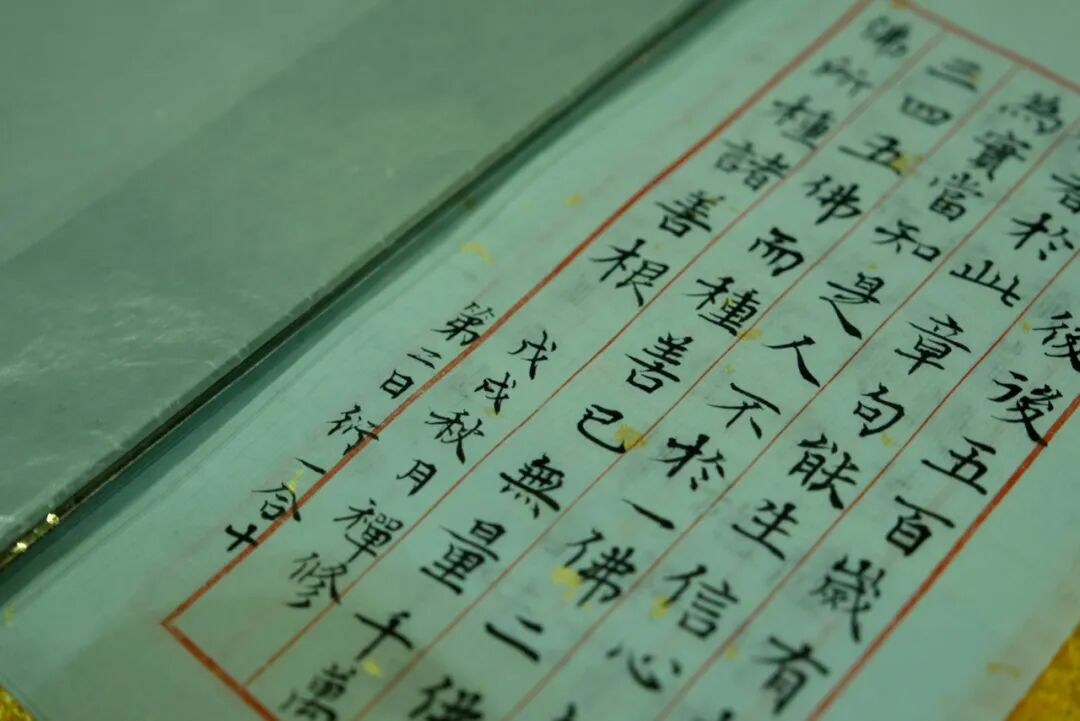 後後五百歲有
者於此章句能生信心
為實當知是人不於一佛二佛
三四五佛而種善已無量千萬
佛所種諸善根
戊戌秋月禪修
第二日衍一合十